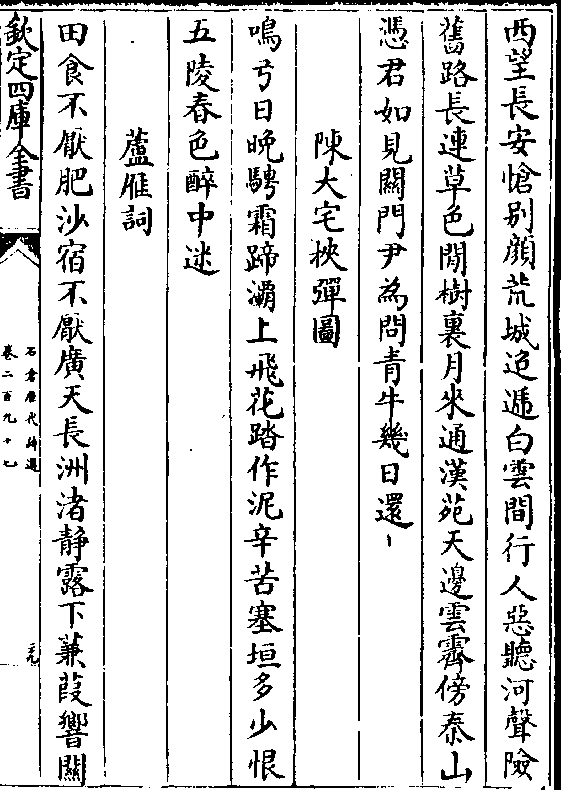 西望長安愴别顔荒城迢遞白雲間行人惡聽河聲險
舊路長連草色閒樹裏月來通漢苑天邊雲霽傍泰山
憑君如見關門尹為問青牛幾日還
陳大宅挾彈圖
鳴弓日晚騁霜蹄灞上飛花踏作泥辛苦塞垣多少恨
五陵春色醉中迷
蘆雁詞
田食不厭肥沙宿不厭廣天長洲渚静露下蒹葭響關
欽定四庫全書
石倉歷代詩選
卷二百九十七